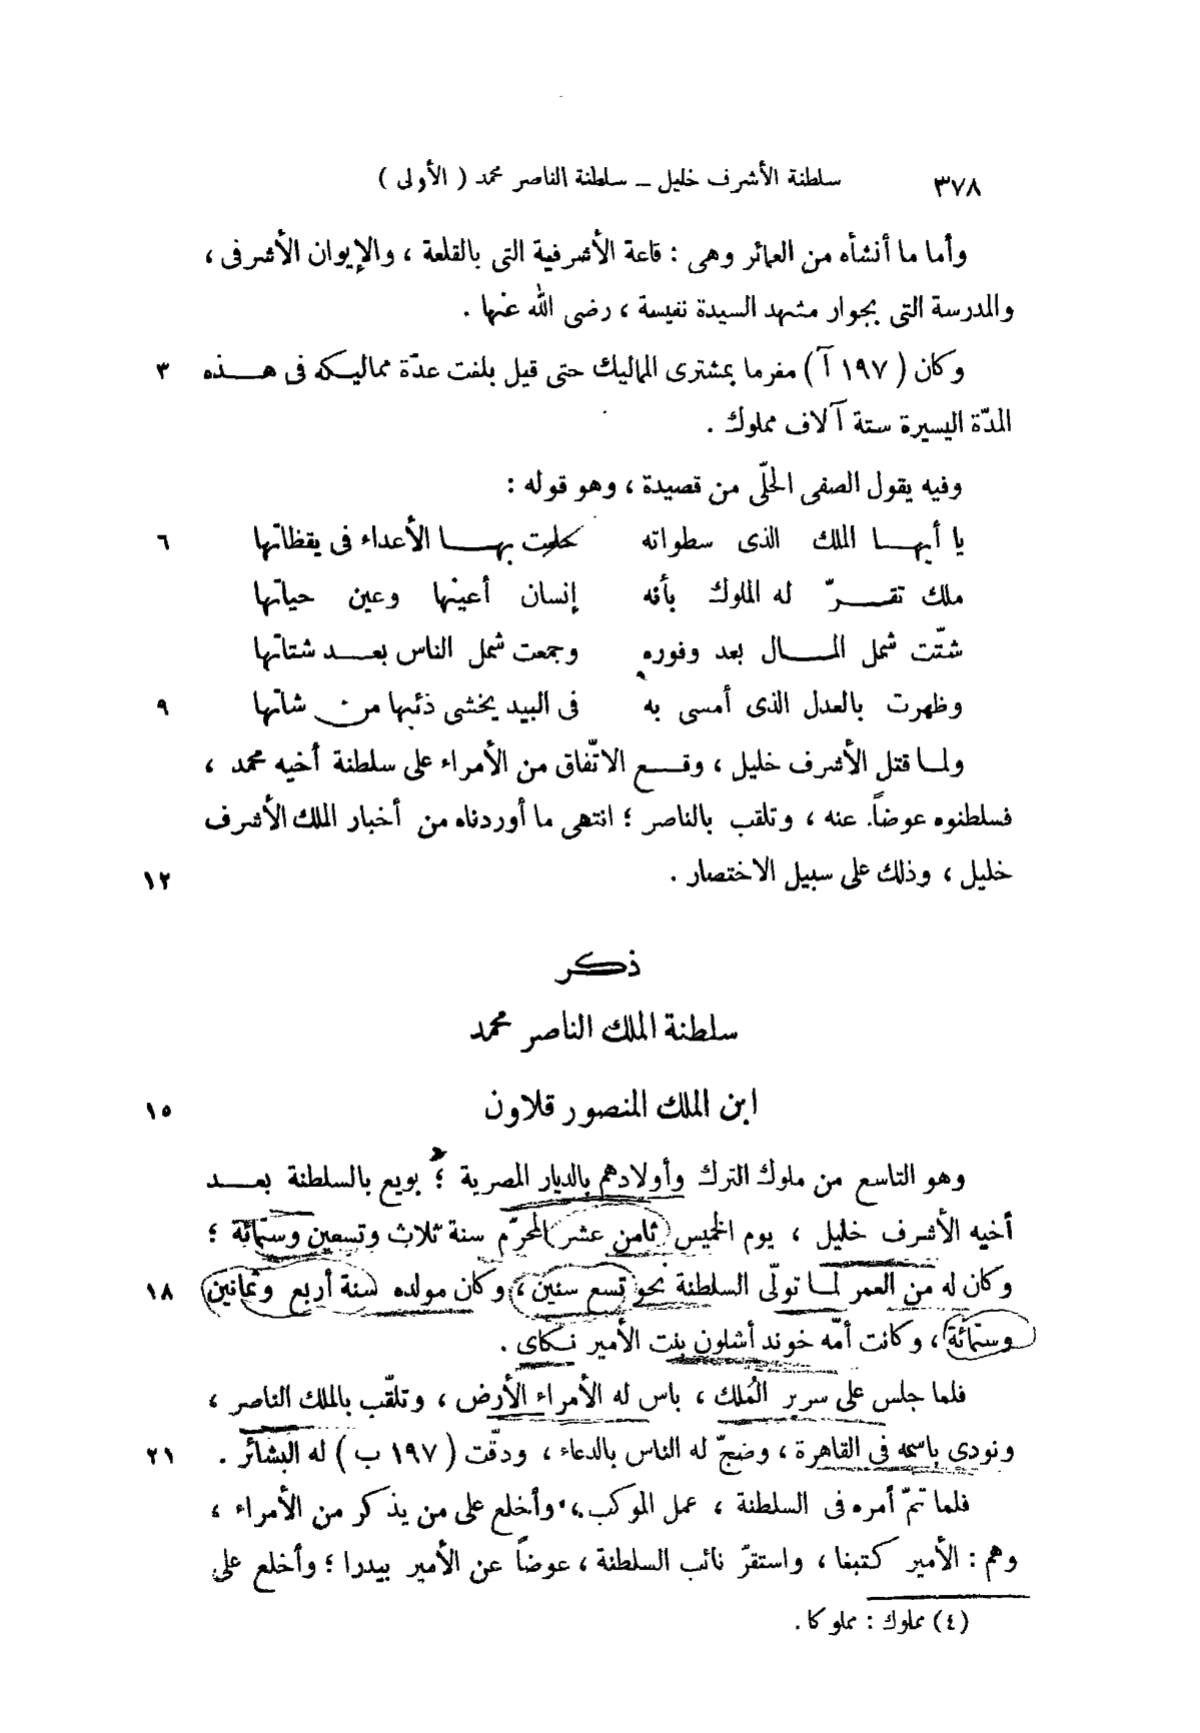 ٣٧٨ سلطنة الأشرف خليل ــ سلطنة الناصر محمد ( الأولى )
وأما ما أنشأه من العمائر وهى : قاعة الأشرفية التى بالقلعة ، والإيوان الأشرفى ،
والمدرسة التى بجوار مشهد السيدة نفيسة ، رضى الله عنها .
وكان ( ١٩٧ آ ) مغرما بمشترى المماليك حتى قيل بلغت عدّة مماليكه فى هـــذه ٣
المدّة اليسيرة ستة آلاف مملوك .
وفيه يقول الصفى الحلّى من قصيدة ، وهو قوله :
يا أيهـــا الملك الذى سطواته حلمت بهـــا الأعداء فى يقظاتها ٦
ملك تقـــرّ له الملوك بأنه إنسان أعينها وعين حياتها
شتّت شمل المـــال بعد وفوره وجمعت شمل الناس بعـــد شتاتها
وظهرت بالعدل الذى أمسى به فى البيد يخشى ذئبها من شاتها ٩
ولمــا قتل الأشرف خليل ، وقـــع الاتّفاق من الأمراء على سلطنة أخيه محمد ،
فسلطنوه عوضاً عنه ، وتلقب بالناصر ؛ انتهى ما أوردناه من أخبار الملك الأشرف
خليل ، وذلك على سبيل الاختصار . ١٢
ذكر
سلطنة الملك الناصر محمد
ابن الملك المنصور قلاون ١٥
وهو التاسع من ملوك الترك وأولادهم بالديار المصرية ؛ بويع بالسلطنة بعـــد
أخيه الأشرف خليل ، يوم الخميس ثامن عشر المحرّم سنة ثلاث وتسعين وستمائة ؛
وكان له من العمر لما تولّى السلطنة نحو تسع سنين ، وكان مولده سنة أربع وثمانين ١٨
وستمائة ، وكانت أمّه خوند أشلون بنت الأمير نكاى .
فلما جلس على سرير المُلك ، باس له الأمراء الأرض ، وتلقّب بالملك الناصر ،
ونودى باسمه فى القاهرة ، وضجّ له الناس بالدعاء ، ودقّت ( ١٩٧ ب ) له البشائر . ٢١
فلما تمّ أمره فى السلطنة ، عمل الموكب ، وأخلع على من يذكر من الأمراء ،
وهم : الأمير كتبغا ، واستقرّ نائب السلطنة ، عوضاً عن الأمير بيدرا ؛ وأخلع على
(٤) مملوك : مملوكا .